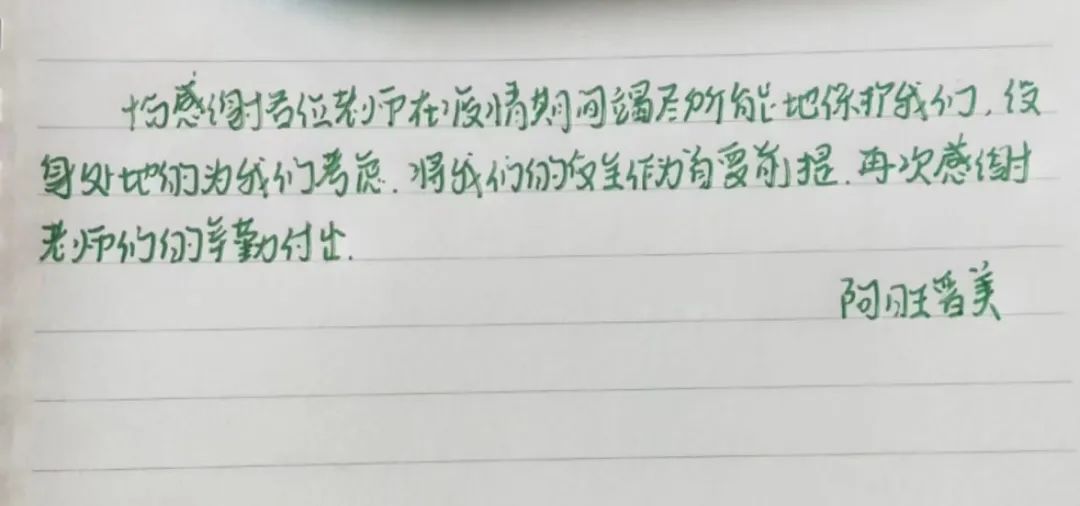 十伤感谢各位老师在疫情期间竭尽所能地保护我们,设
身处地的为我们考虑.将我们的安全作为首要前提.再次感谢
老师们的辛勤付出.
阿旺晋美